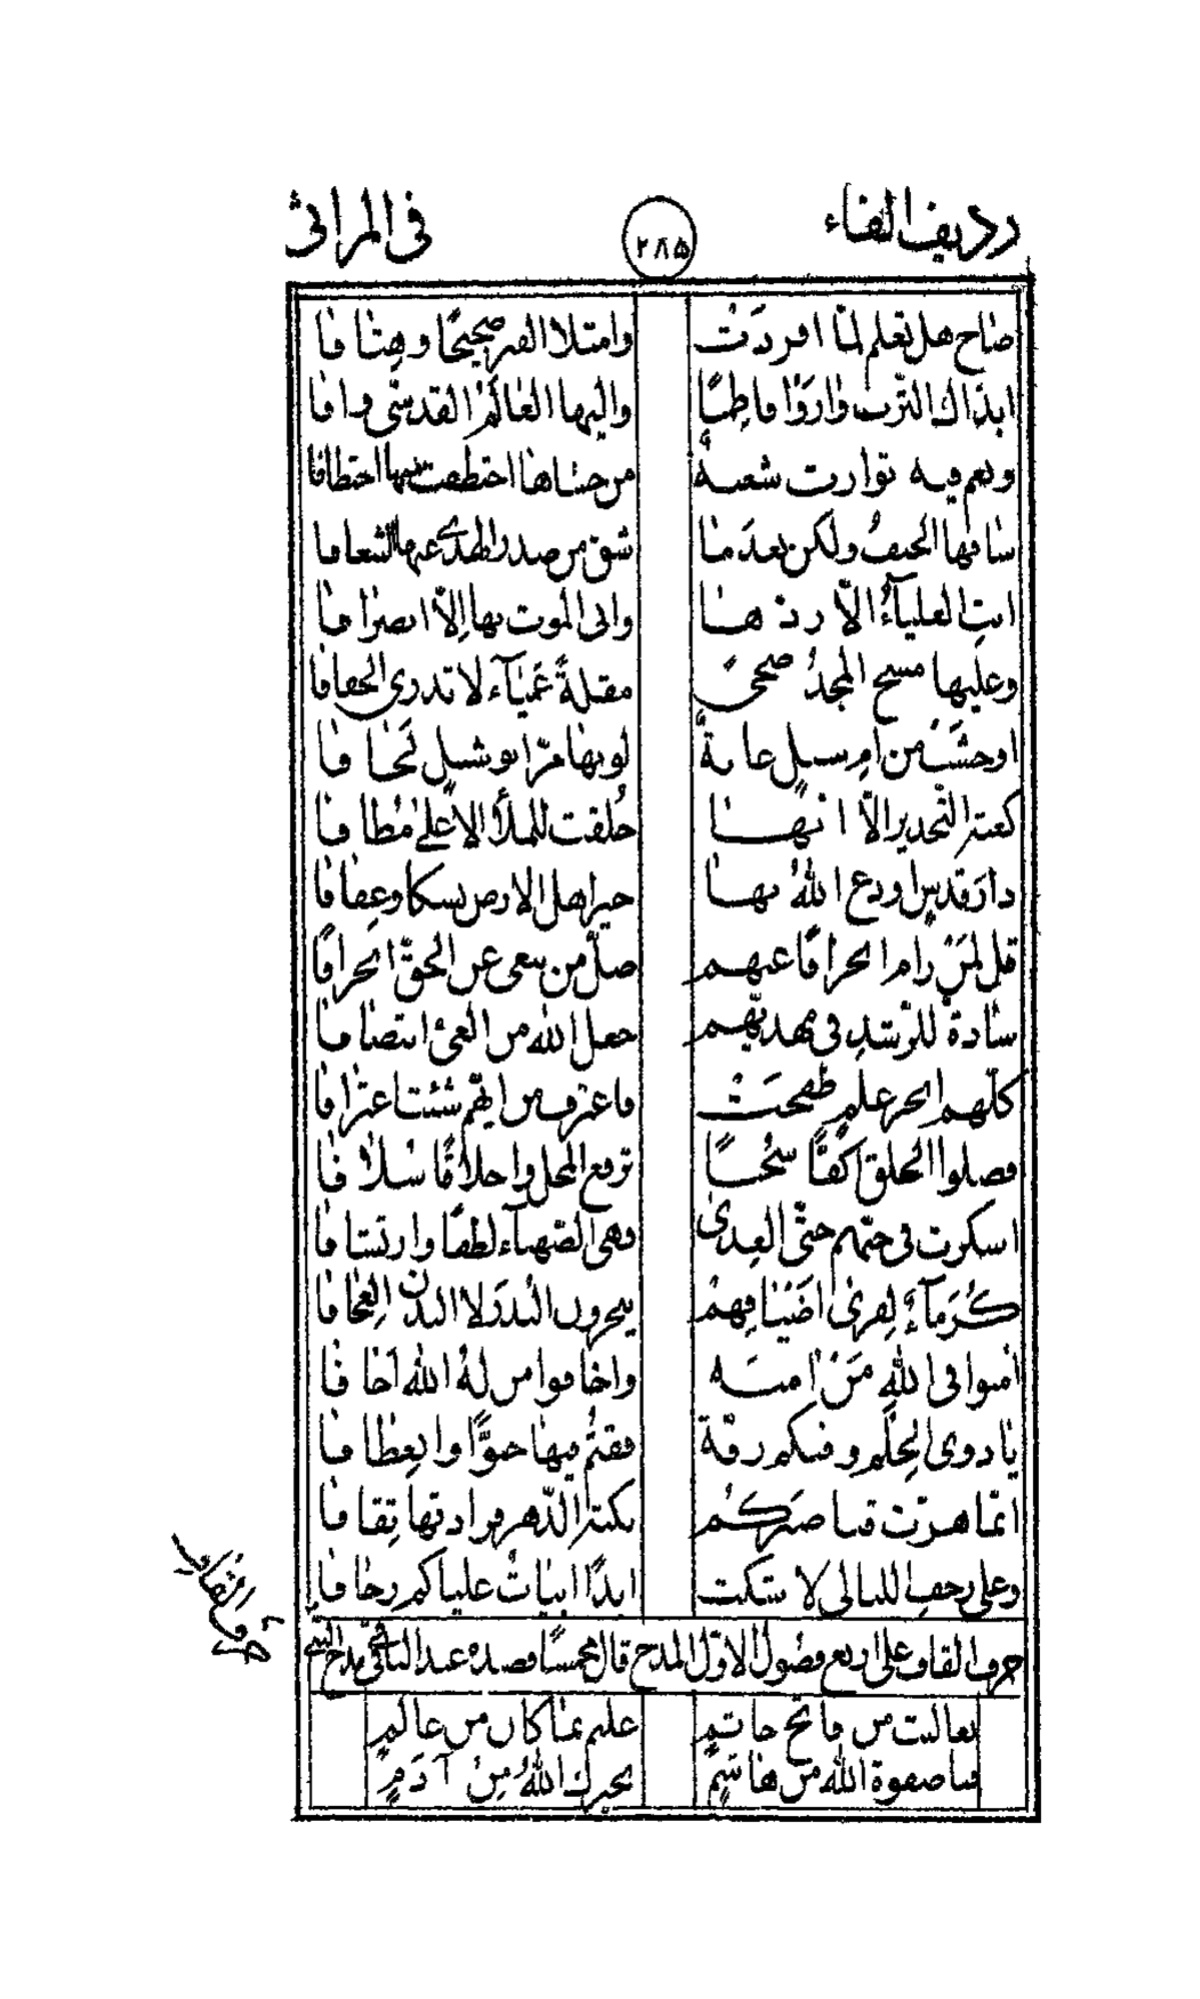 رديف الفاء ٢٨٥ في المراثي
صاح هل تعلم لمّا افردَت وامتلا القبر صحيحًا وهتافا
ابذاك الترب واروا فاطمًا واليها العالم القدسي وافا
ونعم فيه توارت شعبة من حشاها اختطفت منها اختطافا
ساقها الحتف ولكن بعد ما شق من صدر الهدى عنها الشغافا
ابت العلياء الّا ردّها وابى الموت بها إلّا انصرافا
وعليها مسح المجد ضحى مقلةً عمياء لا تدرى الجفافا
اوحشت من ام شبل غابة لو بها مرّ ابو شبل لخافا
كعبة التخدير الّا انها خلقت للملأ الأعلى مطافا
دار قدس اودع الله بها خير اهل الارض نسكا وعفافا
قل لمن رام انحرافا عنهم ضلّ من يبغى عن الحقّ انحرافا
سادة للرشد في مهديّهم جعل الله من الغيّ انتصافا
كلّهم ابحر علم طفحت فاغترف من ايّهم شئت اغترافا
فضلوا الخلق اكفًّا سحبًا ترفع المحل واخلاقًا سلافا
اسكرت في حبّهم حتّى العدى وهي الصهباء لطفًا وارتشافا
كُرَماءٌ لقرى اضيافهم ينحرون البدر لا البدن العجافا
امنوا في الله من امنه واخافوا من له الله اخافا
يا ذوى الحلم وفيكم رقة فقتم فيها حنوًّا وانعطافا
انّما هزّت قنا صبركم نكبة الدهر فزادتها ثقافا
وعلى رجف الليالي لا شكت ابدًا ابيات علياكم رجافا
حرف القاف
حرف القاف على اربع فصول الاوّل المدح قال مخمسًا قصيدة عبد الباقي في مدح النبي
تعاليت من فاتح خاتمٍ عليم بما كان من عالمٍ
فيا صفوة الله من هاشمٍ تخيرك الله من آدمٍ